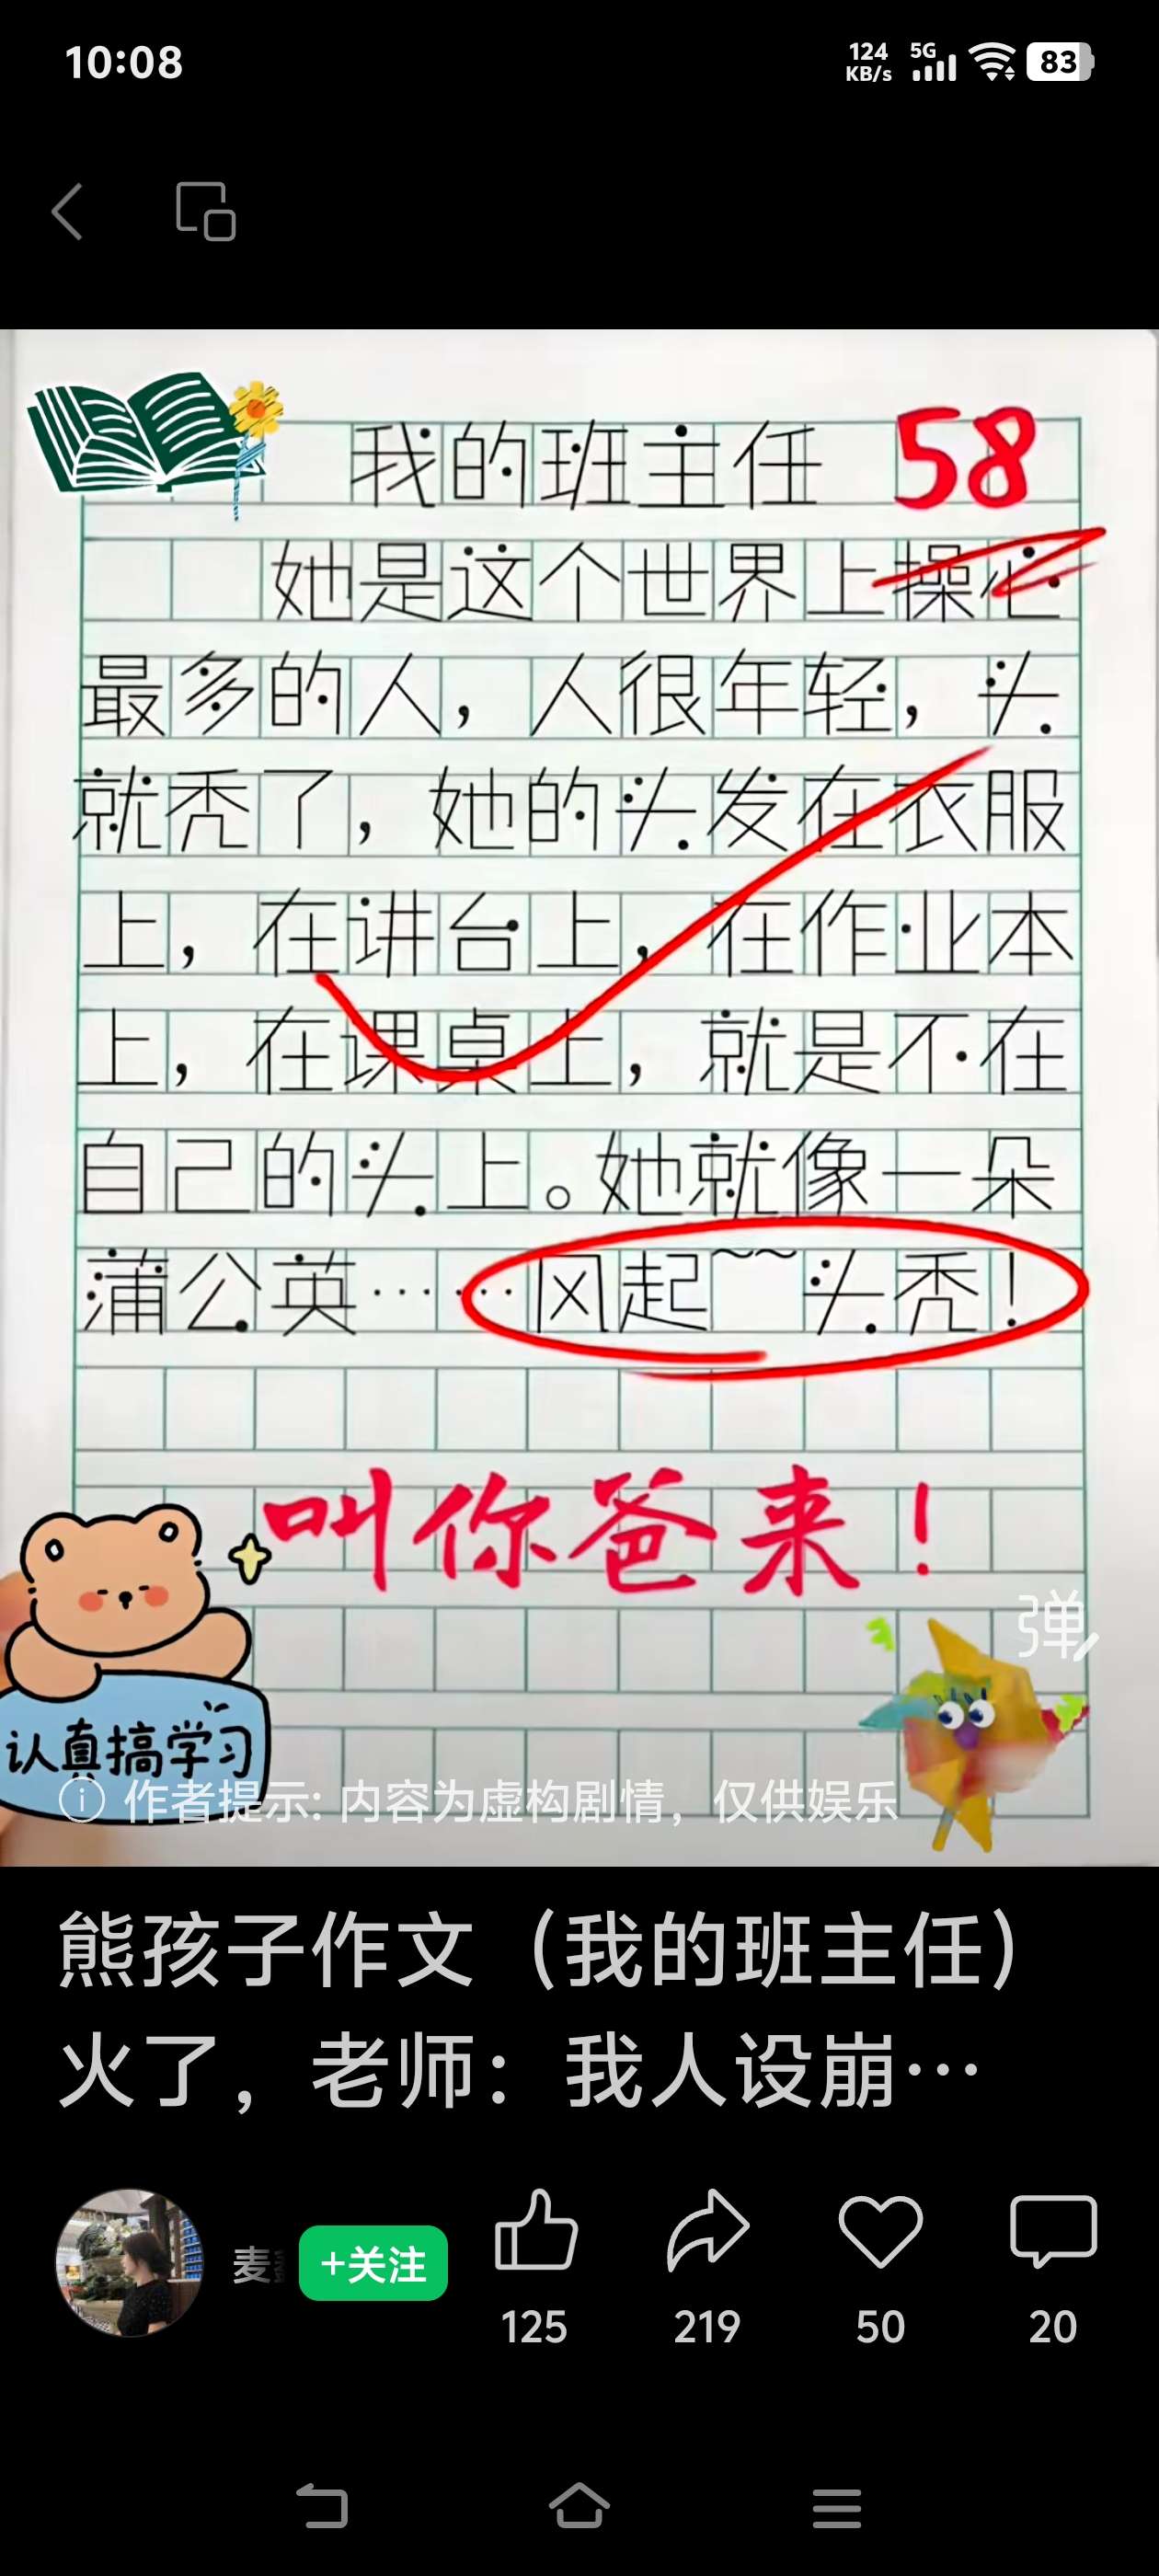 10:08
124 KB/s 5G 83
我的班主任 58
她是这个世界上操心
最多的人，人很年轻，头
就秃了，她的头发在衣服
上，在讲台上，在作业本
上，在课桌上，就是不在
自己的头上。她就像一朵
蒲公英……风起~~头秃！
叫你爸来！
弹
认真搞学习
作者提示: 内容为虚构剧情，仅供娱乐
熊孩子作文（我的班主任）
火了，老师：我人设崩…
麦
+关注
125 219 50 20